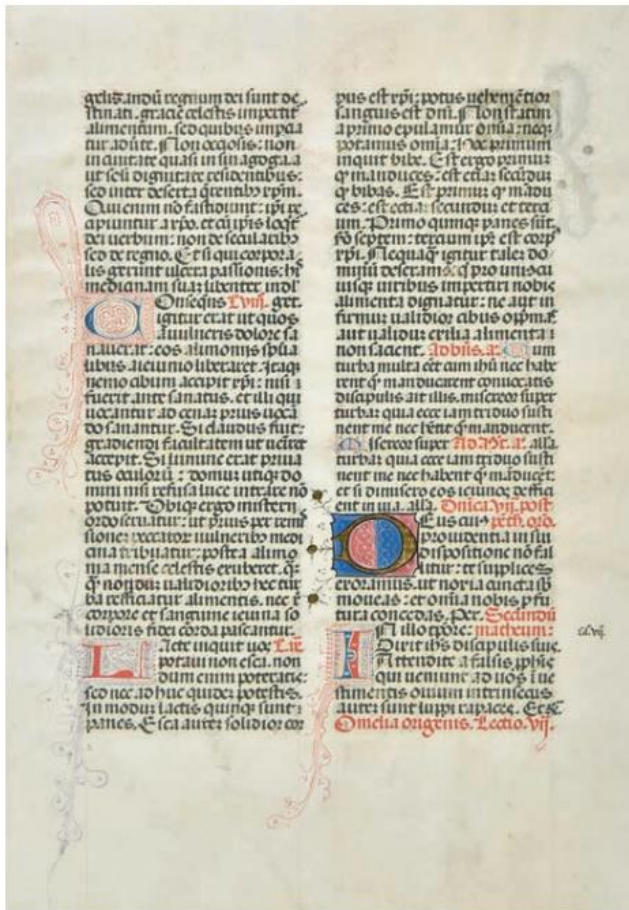 gelis. andũ regnum dei sunt de
stinati. gracie celestis impertit
alimentum. sed quibus impcia
tur adũte. Non ocçosis: non
in ciuitate quasi in sinagoga a
ut seculi dignitate residentibus:
sed inter deserta q̃rentibꝰ xp̃m.
Qui enim nõ fastidiunt: ip̃i re
cipiuntur a xp̃o. et cũ ip̃is loq̃t̃
dei uerbum: non de secularibꝰ
sed de regno. Et si qui corpora
lis gerunt ulcera passionis: hĩs
medicinam suam libenter indl̃
Onseqns Lviii. get.
igitur erat ut quos
a uulneris dolore sa
nauerat: eos alimoniis sp̃ua
libus a ieiunio liberaret. Itaqꝫ
nemo cibum accipit xp̃i: nisi
fuerit ante sanatus. et illi qui
uocantur ad cenam prius uocã
do sanantur. Si claudus fuit:
gradiendi facultatem ut ueniret
accepit. Si lumine erat priua
tus oculorũ: domum utiqꝫ do
mini nisi refusa luce intrare nõ
potuit. Vbiqꝫ ergo misterii
ordo seruatur: ut prius per remi
ssionem peccatorum uulneribus medi
cina tribuatur: postea alimo
nia mense celestis exuberet. q̃
q̃ nondum ualidioribꝰ hec tur
ba reficiatur alimentis. nec x̃
corpore et sanguine ieiuna so
lidioris fidei corda pascantur.
Lacte inquit uos Lix.
potaui non esca. non
dum enim poteratis:
sed nec adhuc quidem potestis.
In modum lactis quinqꝫ sunt
panes. Esca autem solidior cor
pus est xp̃i: potus uehementior
sanguis est dñi. Non statim
a primo epulamur om̃ia: necqꝫ
potamus om̃ia. Hoc primum
inquit bibe. Est ergo primum
q̃ manduces: est etiam secũdum
q̃ bibas. Est primum q̃ mãdu
ces: est etiam secundum et terci
um. Primo quinqꝫ panes sũt.
sc̃do septem: tercium ip̃m est corpꝰ
xp̃i. Nequaq̃ igitur talem do
minũ deseramus q̃ pro uniuscu
iusqꝫ uiribus impertiri nobis
alimenta dignatur: ne aut in
firmum ualidior cibus opp̃mat
aut ualidum exilia alimenta
non sacient. Ad bñs. a. Cum
turba multa eẽt cum ihũ nec habe
rent q̃ manducarent conuocatis
discipulis ait illis. misereor super
turbam quia ecce iam triduo susti
nent me nec hñt q̃ manducent.
Misereor super Ad Mr̃. a. alla
turbam quia ecce iam triduo susti
nent me nec habent q̃ mãducẽt:
et si dimisero eos ieiunos defici
ent in uia. alla. Dñica vii. post
Deus cuiꝰ peth. oro.
prouidentia in sui
dispositione nõ fal
litur: te supplices
exoramus. ut noxia cuncta sb̃
moueas: et omĩa nobis p̃fu
tura concedas. Per. Secundũ
In illo tp̃ore: matheum:
Dixit ihs discipulis suis.
Attendite a falsis p̃phis
qui ueniunt ad uos ĩ ue
stimentis ouium intrinsecus
autem sunt lupi rapaces. Et r̃.
ca. vij.
Omelia origenis. Lectio. vij.